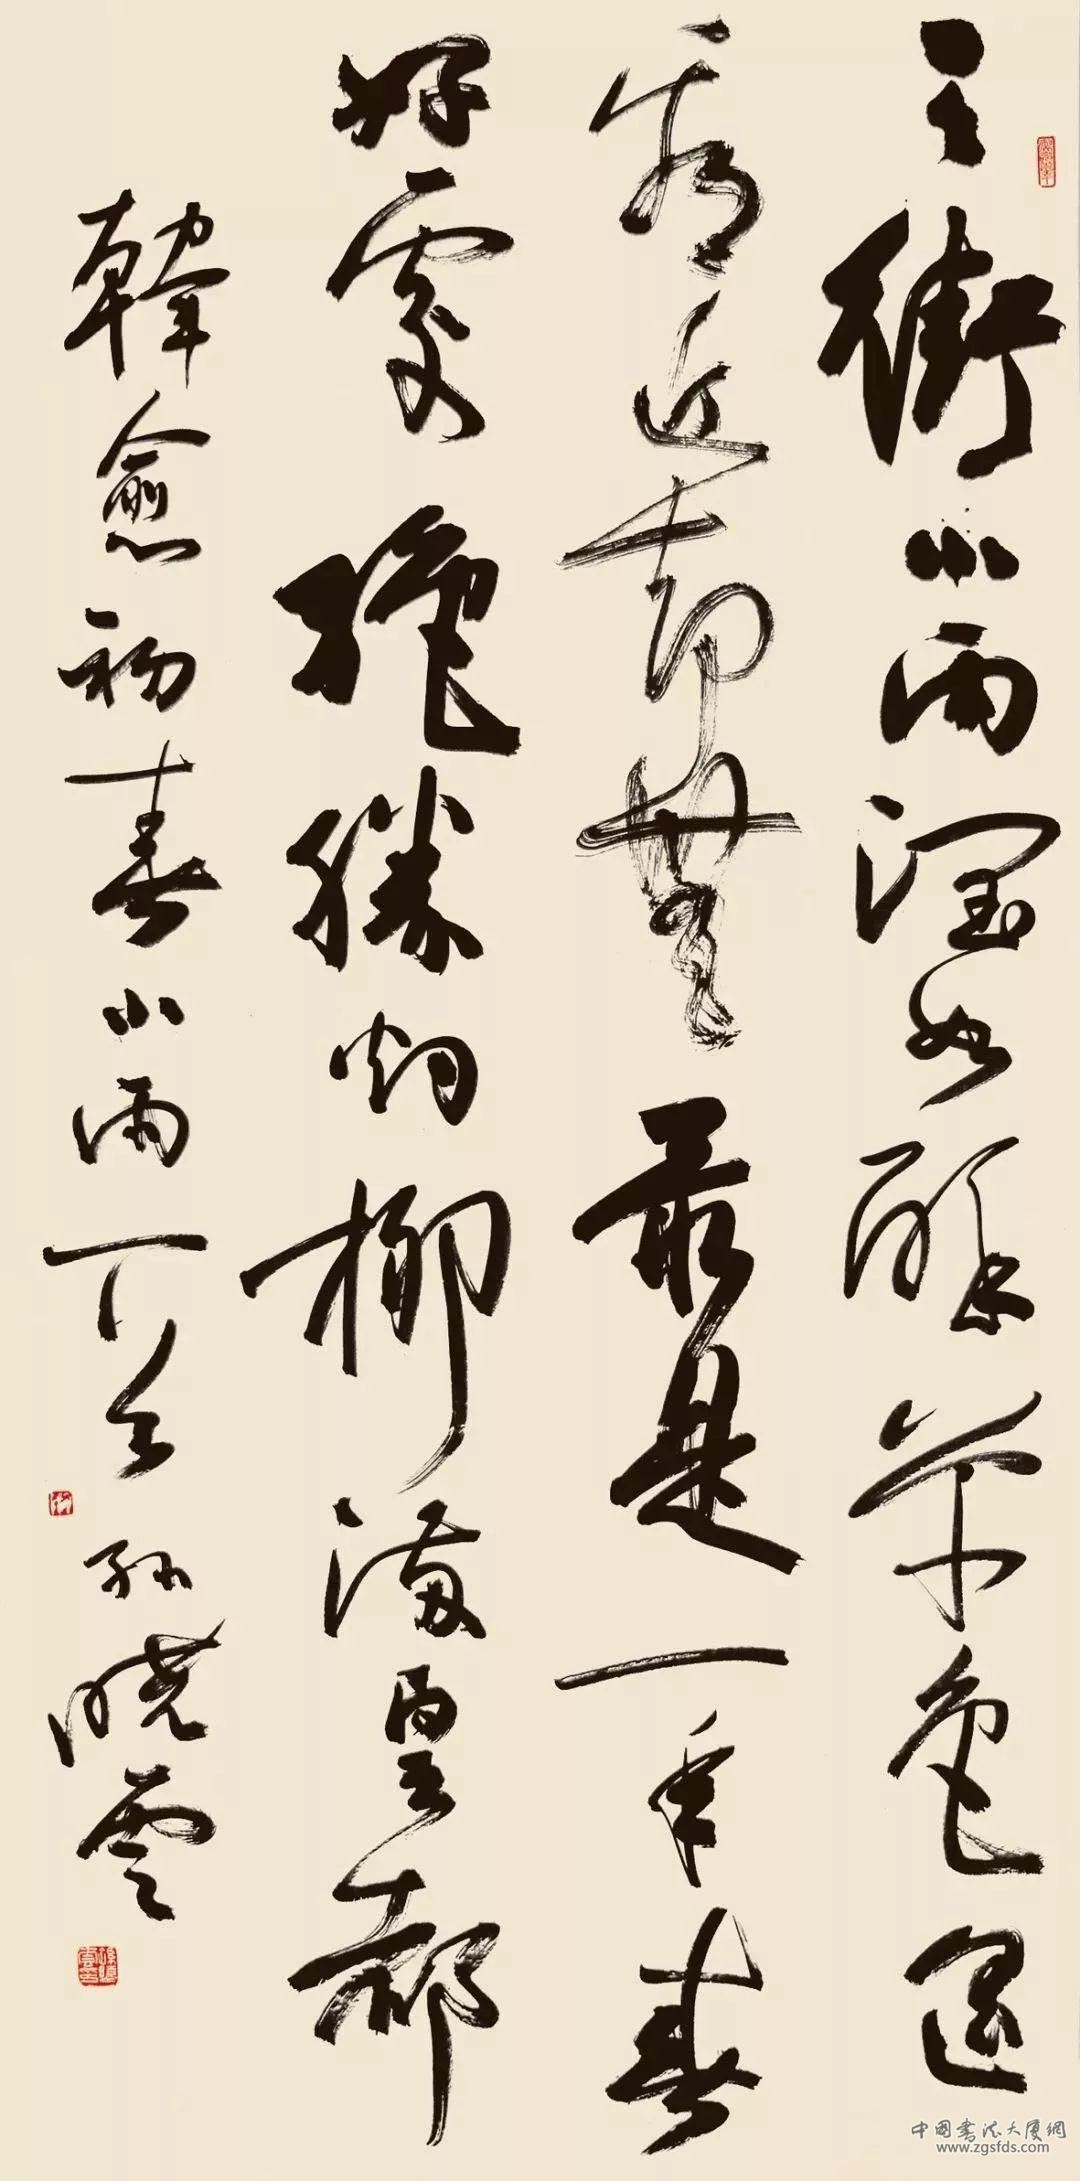 天街小雨潤如酥草色遥
看近却無最是一年春
好處絶勝烟柳滿皇都
韓愈初春小雨丁亥 孫曉雲
中國書法大厦網
www.zgsfds.com